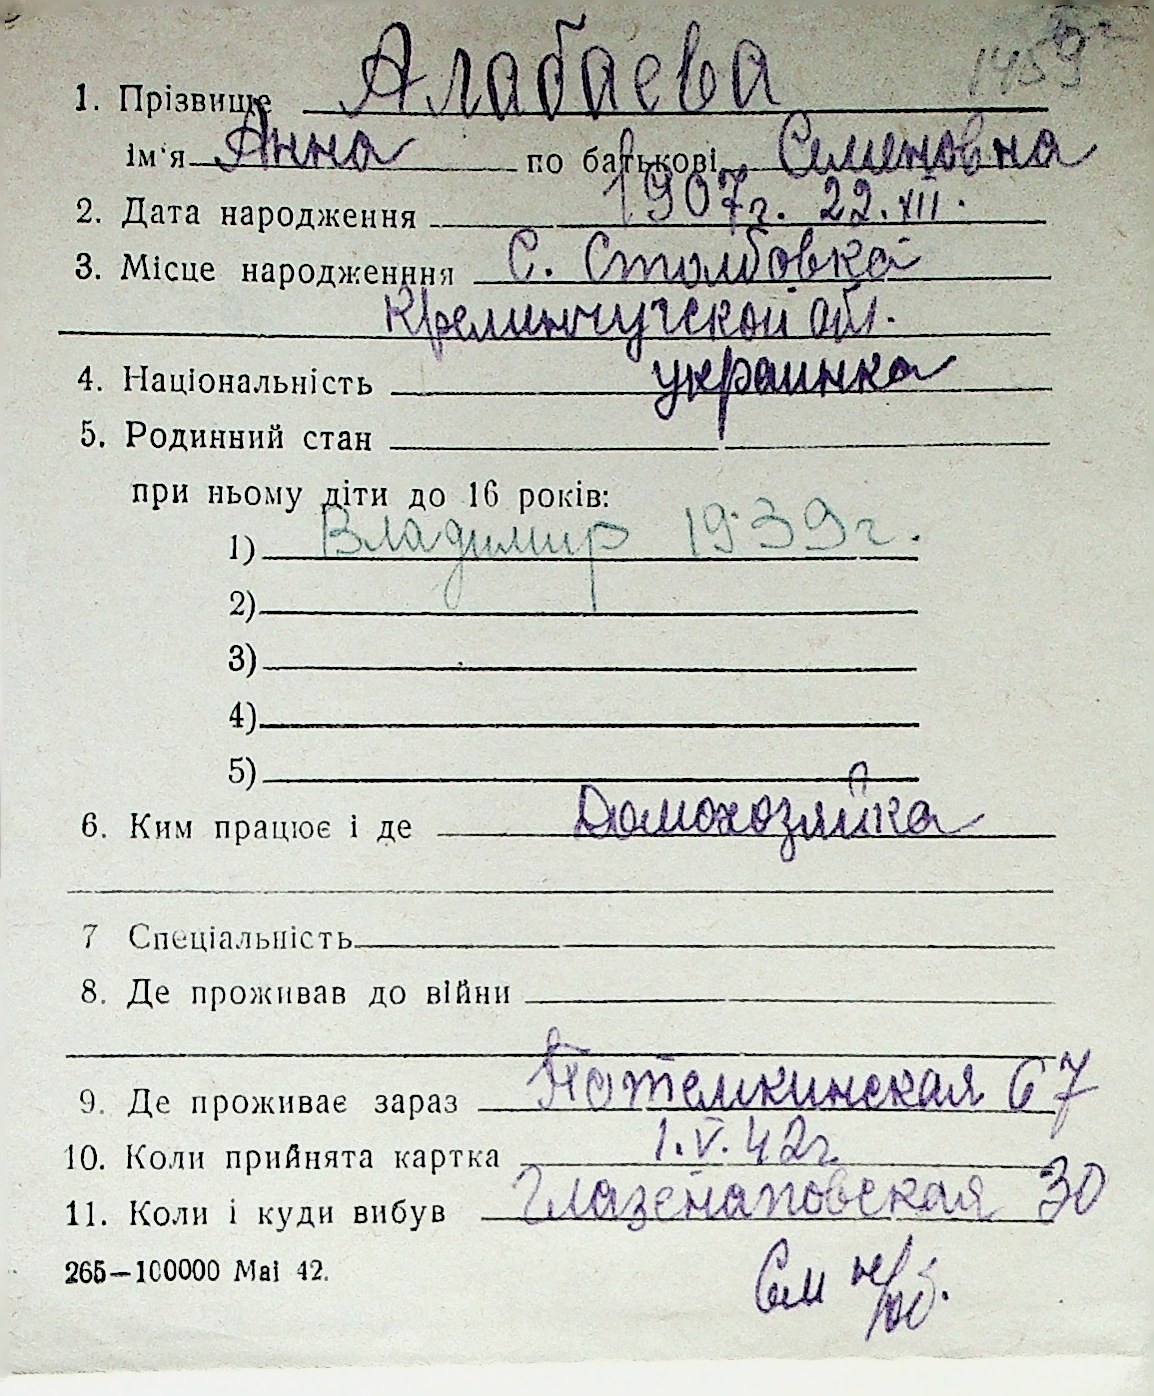 1459
1. Прізвище Алабаева
ім'я Анна по батькові Семеновна
2. Дата народження 1907г. 22.XII.
3. Місце народженння С. Столбовка
Кременчугской обл.
4. Національність украинка
5. Родинний стан
при ньому діти до 16 років:
1) Владимир 1939г.
2)
3)
4)
5)
6. Ким працює і де Домохозяйка
7 Спеціальність
8. Де проживав до війни
9. Де проживає зараз Потемкинская 67
10. Коли прийнята картка 1.V.42г.
11. Коли і куди вибув Глазенаповская 30
265—100000 Mai 42.
См н/об.